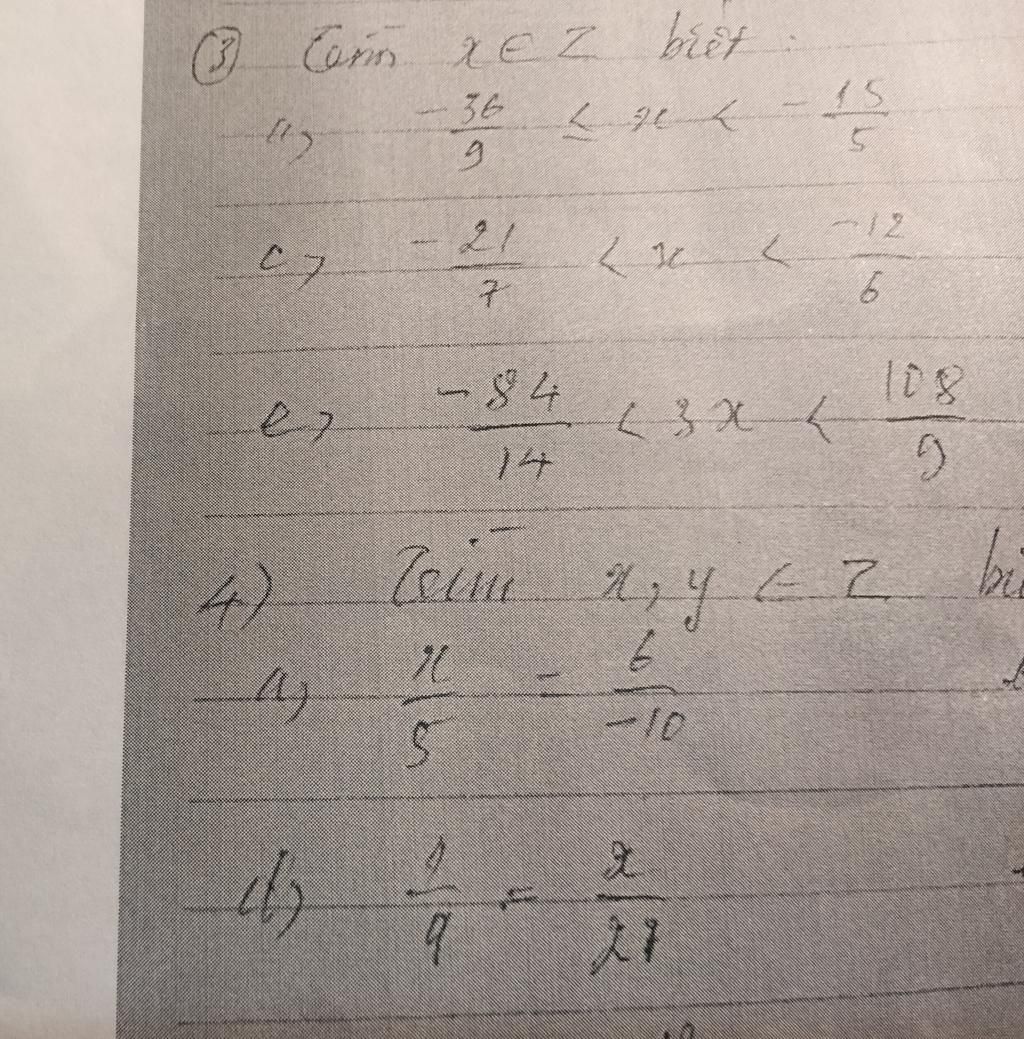 ③ Tìm x ∈ Z biết :
a, -36/9 ≤ x < -15/5
c, -21/7 < x < -12/6
e, -84/14 < 3x < 108/9
4) Tìm x, y ∈ Z
a, x/5 = 6/-10
d, 1/9 = x/27